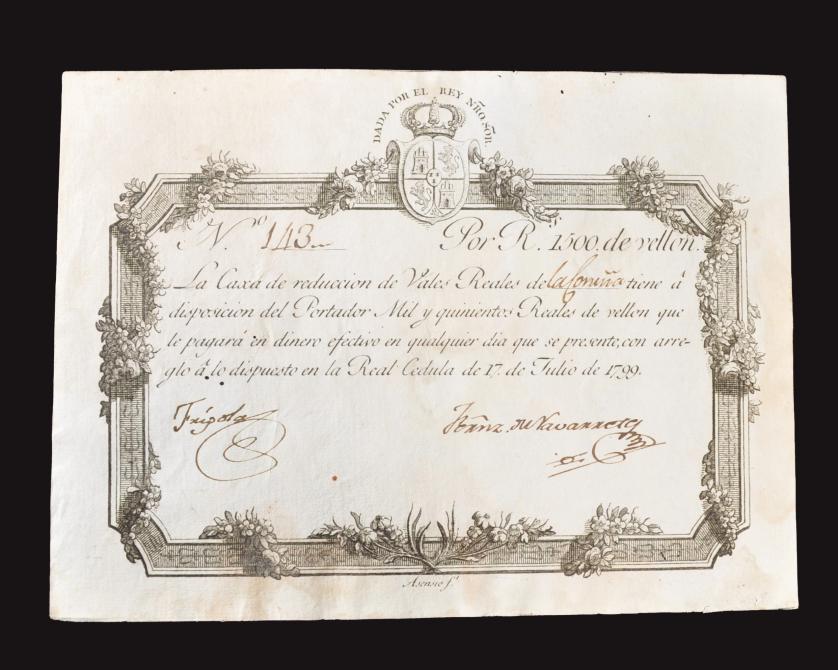 DADA POR EL REY NRO SOR.
N.ro 143
Por R.s 1.500. de vellon.
La Caxa de reduccion de Vales Reales de la Coruña tiene á
disposicion del Portador Mil y quinientos Reales de vellon que
le pagará en dinero efectivo en qualquier dia que se presente, con arre-
glo á lo dispuesto en la Real Cedula de 17. de Julio de 1799.
Frígola
de Navarrete
Asensio f.t